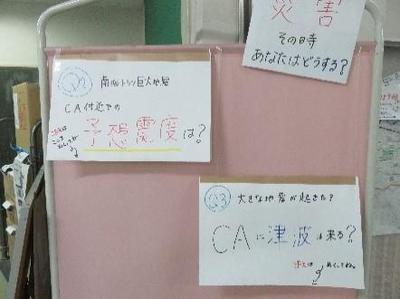 災害
その日時
あなたはどうする?
Q2
南海トラフ巨大地震
CA付近での
予想震度は?
Q3
大きな地震が起きた?
CAに津波は来る?
答えは
めくってね。